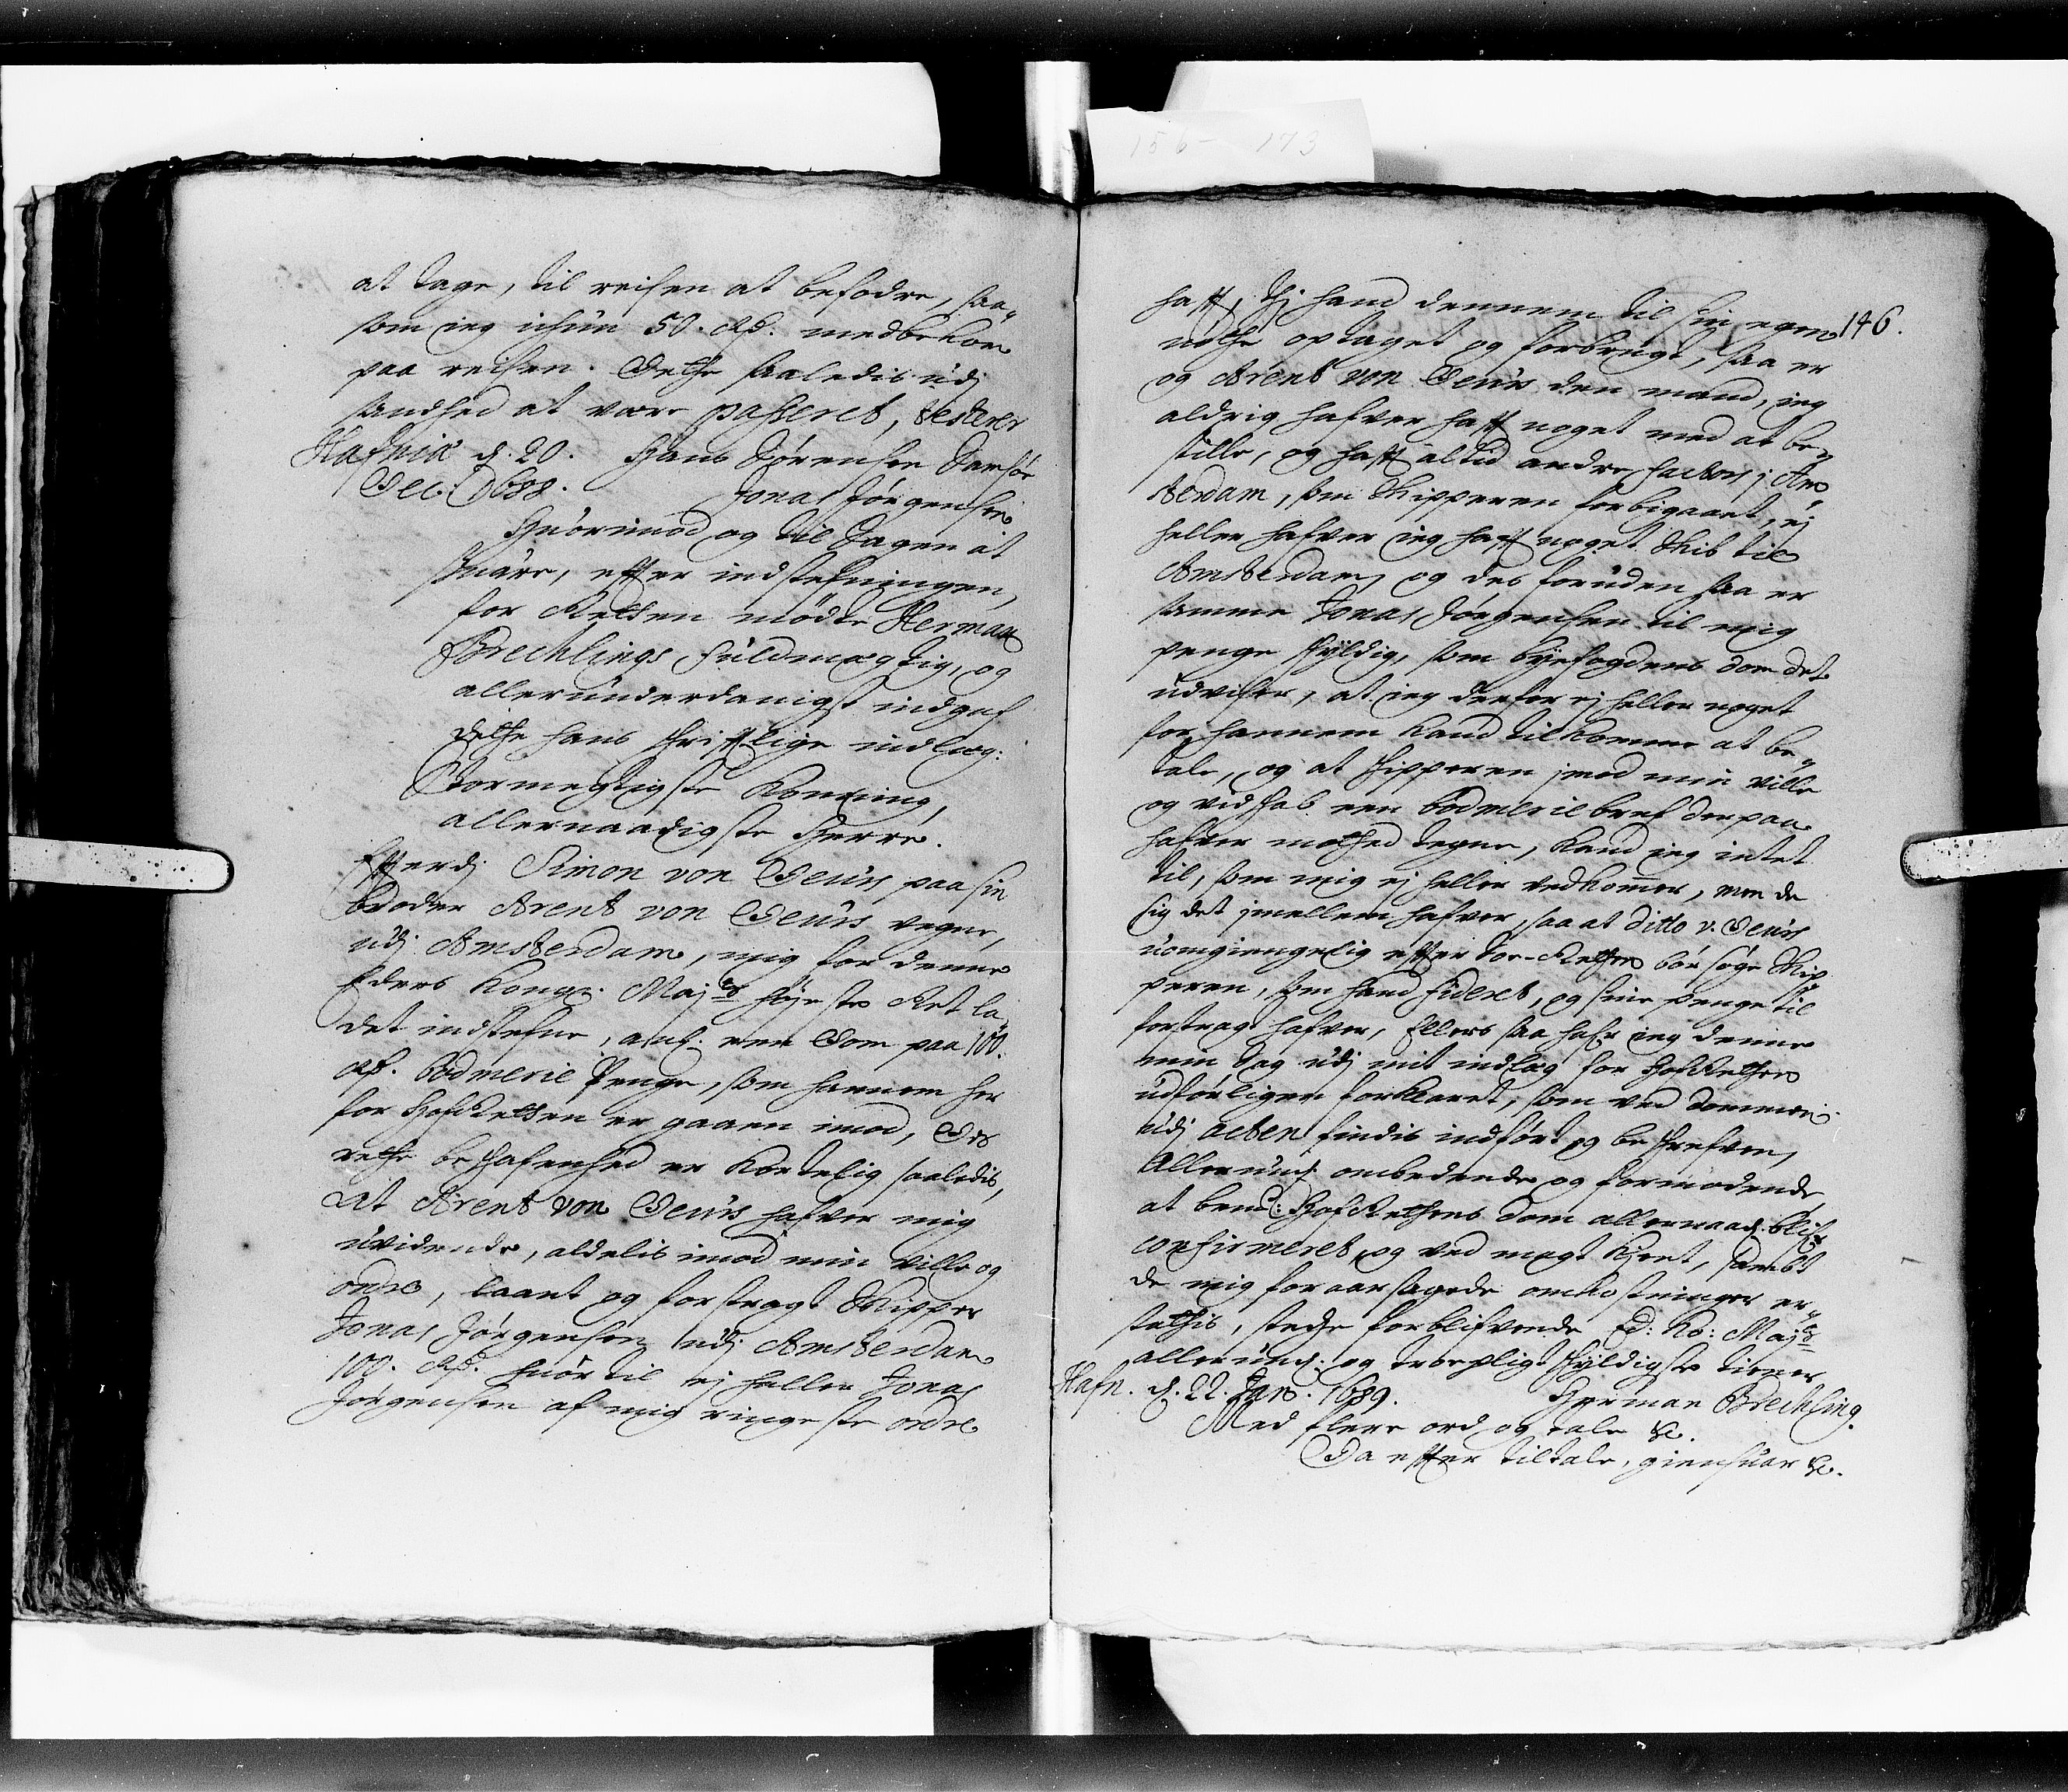 156 - 173
at tage, til reisen at befodre, saa-
som ieg ichun 50. Rd. medbekom
paa reisen. Dette saaledis udj
sandhed at være passeret, testerer
Hafniæ d. 20. Hans Sørensen
Dec. 1688. Jonas Jørgensen
Huorimod og til Sagen at
suare, effter indstefningen,
for Retten mødte Herman
Brechlings fuldmægtig, og
allerunderdanigst indgaf
dette hans skrifftlige indlæg:
Stormegtigste Konning,
allernaadigste Herre.
Efftterdj Simon von Deurs paa sin
broder Arent von Deurs vegne,
udj Amsterdam, mig for denne
Eders Kongl. Mayts høyeste Ret la-
det indstefne, anl. een Dom paa 100.
Rd. Bodmerie Penge, som hannem her
for HofRetten er gaaen imod, Des
rette beskafenhed er kortelig saaledis,
at Arent von Deurs hafver mig
uvidende, aldelis imod min ville og
ordre, laant og forstragt Skipper
Jonas Jørgensen udj Amsterdam
100. Rd. huortil ej heller Jonas
Jørgensen af mig ringeste ordre
146.
hafft, thj hand dennem til sin egen
nøtte optaget og forbrugt, saa er
og Arent von Deurs den mand, ieg
aldrig hafver hafft noget med at be-
stille, og hafft altid andre factors j Am-
sterdam, som Skipperen forbigaaet, ej
heller hafver ieg hafft noget Skib til
Amsterdam, og des foruden saa er
samme Jonas Jørgensen til mig
penge skyldig, som byefogdens dom det
udviser, at ieg derfor ej heller noget
for hannem kand tilkomme at be-
tale, og at Skipperen imod min ville
og vidskab een bodmerie bref derpaa
hafver mottet tegne, kand ieg intet
til, som mig ej heller vedkommer, men de
sig det imellem hafver, saa at ditto v. Deurs
uomgiengelig effter Søe-Retten bør søge Skip-
peren, som hand fideret, og sine penge til
forstragt hafver, Ellers saa hafr ieg denne
min Sag udj mit indlæg for HofRetten
udførligen forklaret, som ved dommen
udj acten findis indført og beskrefven,
Allerund. ombedende og formodende,
at bemt. HofRettens dom allernaad. blifr
confirmeret, og ved magt kient, sambt
de mig foraarsagede omkostninger er-
stattis, stedse forblifvende Ed: Ko: Mayts
allerund. og troepligt skyldigste tiener
Hafn. d. 22. Jan. 1689. Herman Brechling.
Med flere ord og tale &c.
Da effter tiltale, giensuar &c.